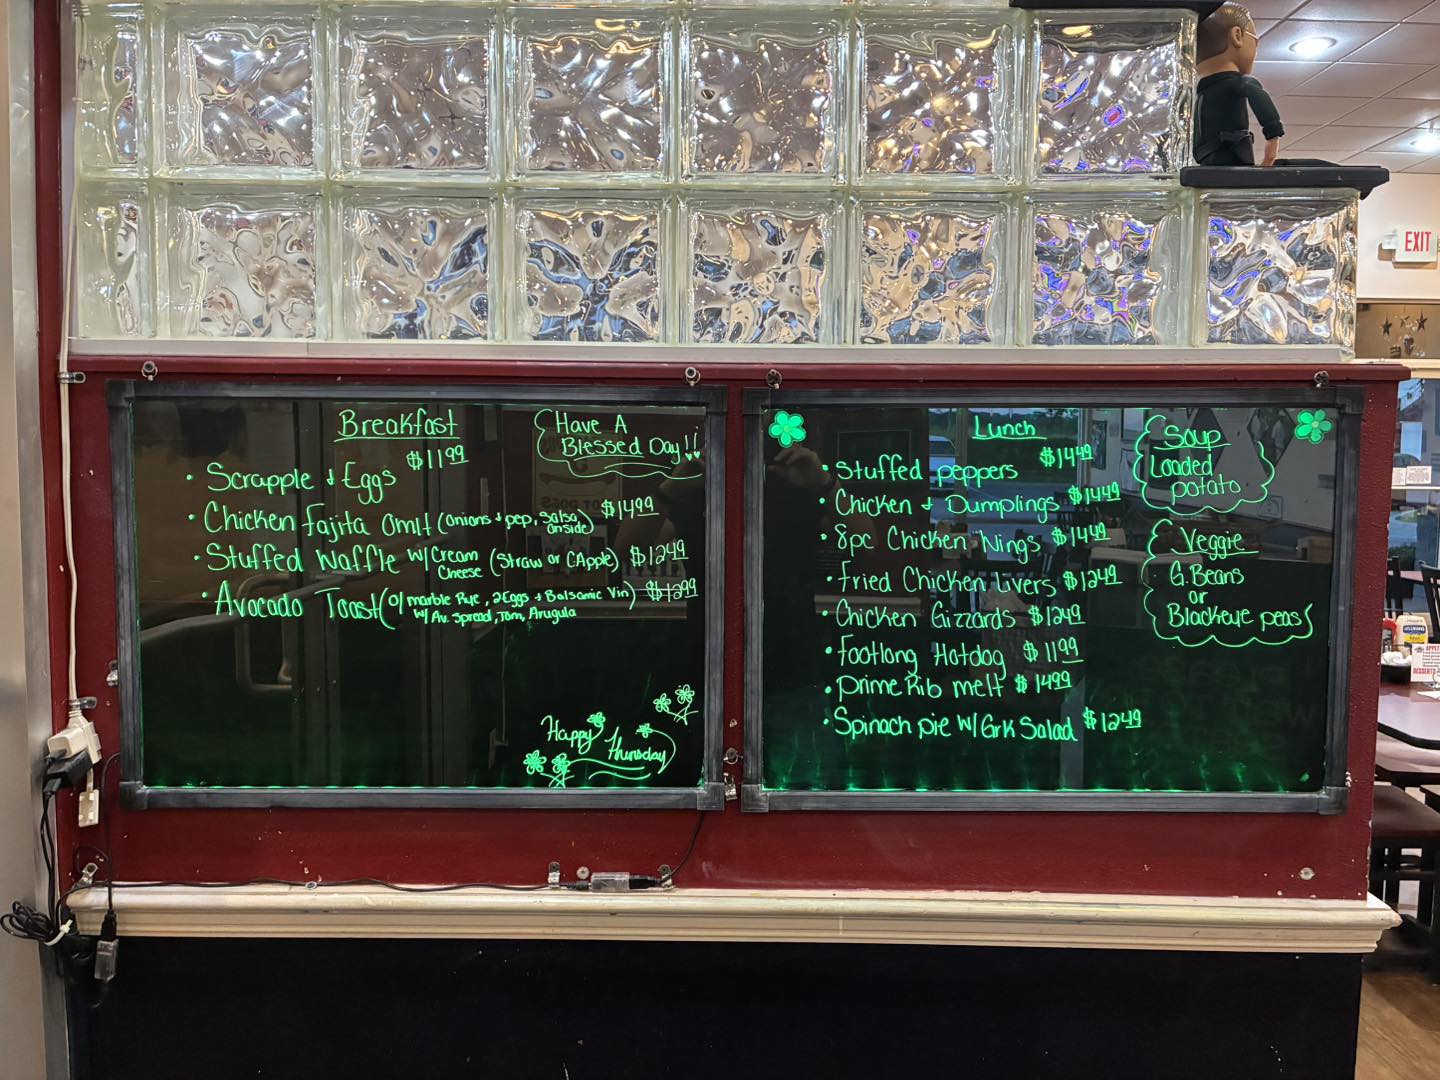 Breakfast
Have A
Blessed Day!!
• Scrapple & Eggs $11.99
• Chicken Fajita Omlt (Onions + pep, Salsa onside) $14.99
• Stuffed Waffle w/ Cream Cheese (Straw or CApple) $12.49
• Avocado Toast (O/ marble Rye, 2 Eggs + Balsamic Vin) $12.99
w/ Av. Spread, Tom, Arugula
Happy Thursday
Lunch
• Stuffed peppers $14.49
• Chicken & Dumplings $14.49
• 8pc Chicken Wings $14.49
• Fried Chicken Livers $12.49
• Chicken Gizzards $12.49
• Footlong Hotdog $11.99
• Prime Rib melt $14.99
• Spinach pie w/ Grk Salad $12.49
Soup
Loaded
potato
Veggie
G. Beans
or
Blackeye peas
EXIT